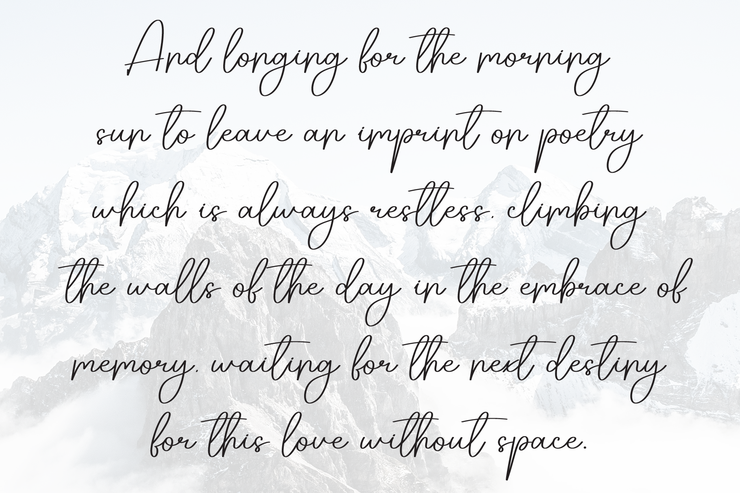 And longing for the morning
sun to leave an imprint on poetry
which is always restless. climbing
the walls of the day in the embrace of
memory. waiting for the next destiny
for this love without space.